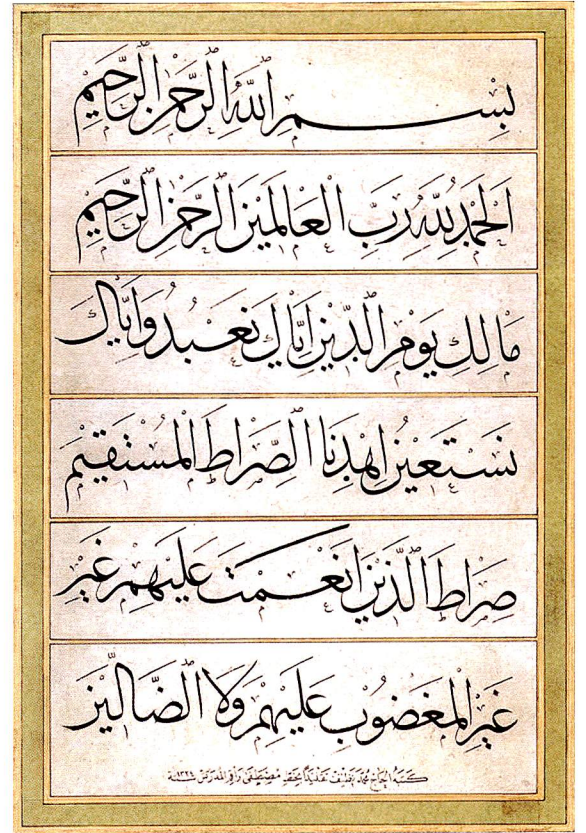 بِسْمِ اللّٰهِ الرَّحْمٰنِ الرَّحِيْمِ
اَلْحَمْدُ لِلّٰهِ رَبِّ الْعَالَمِيْنَ الرَّحْمٰنِ الرَّحِيْمِ
مَالِكِ يَوْمِ الدِّيْنِ اِيَّاكَ نَعْبُدُ وَاِيَّاكَ
نَسْتَعِيْنُ اِهْدِنَا الصِّرَاطَ الْمُسْتَقِيْمَ
صِرَاطَ الَّذِيْنَ اَنْعَمْتَ عَلَيْهِمْ غَيْرِ
غَيْرِ الْمَغْضُوْبِ عَلَيْهِمْ وَلَا الضَّالِّيْنَ
كتبه الحاج محمد نظيف تقليدا لخط مصطفى راقم